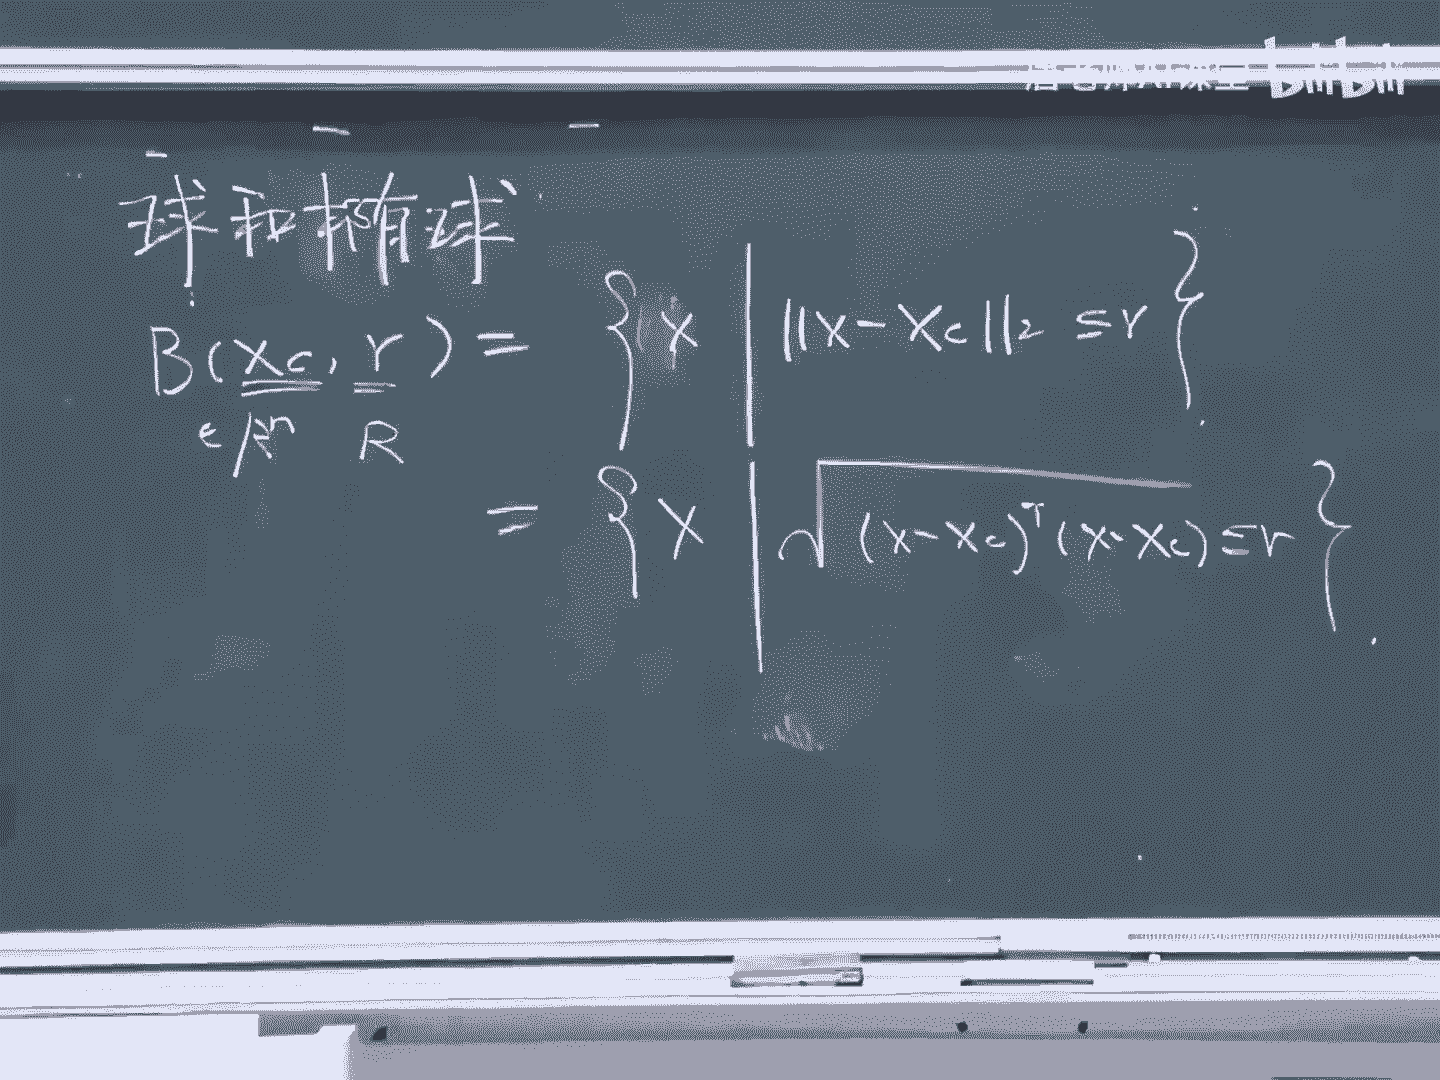 bilibili
球和椭球
B(Xc, r) = { X | ||X - Xc||₂ ≤ r }
∈ Rⁿ R
= { X | √(X - Xc)ᵀ(X - Xc) ≤ r }